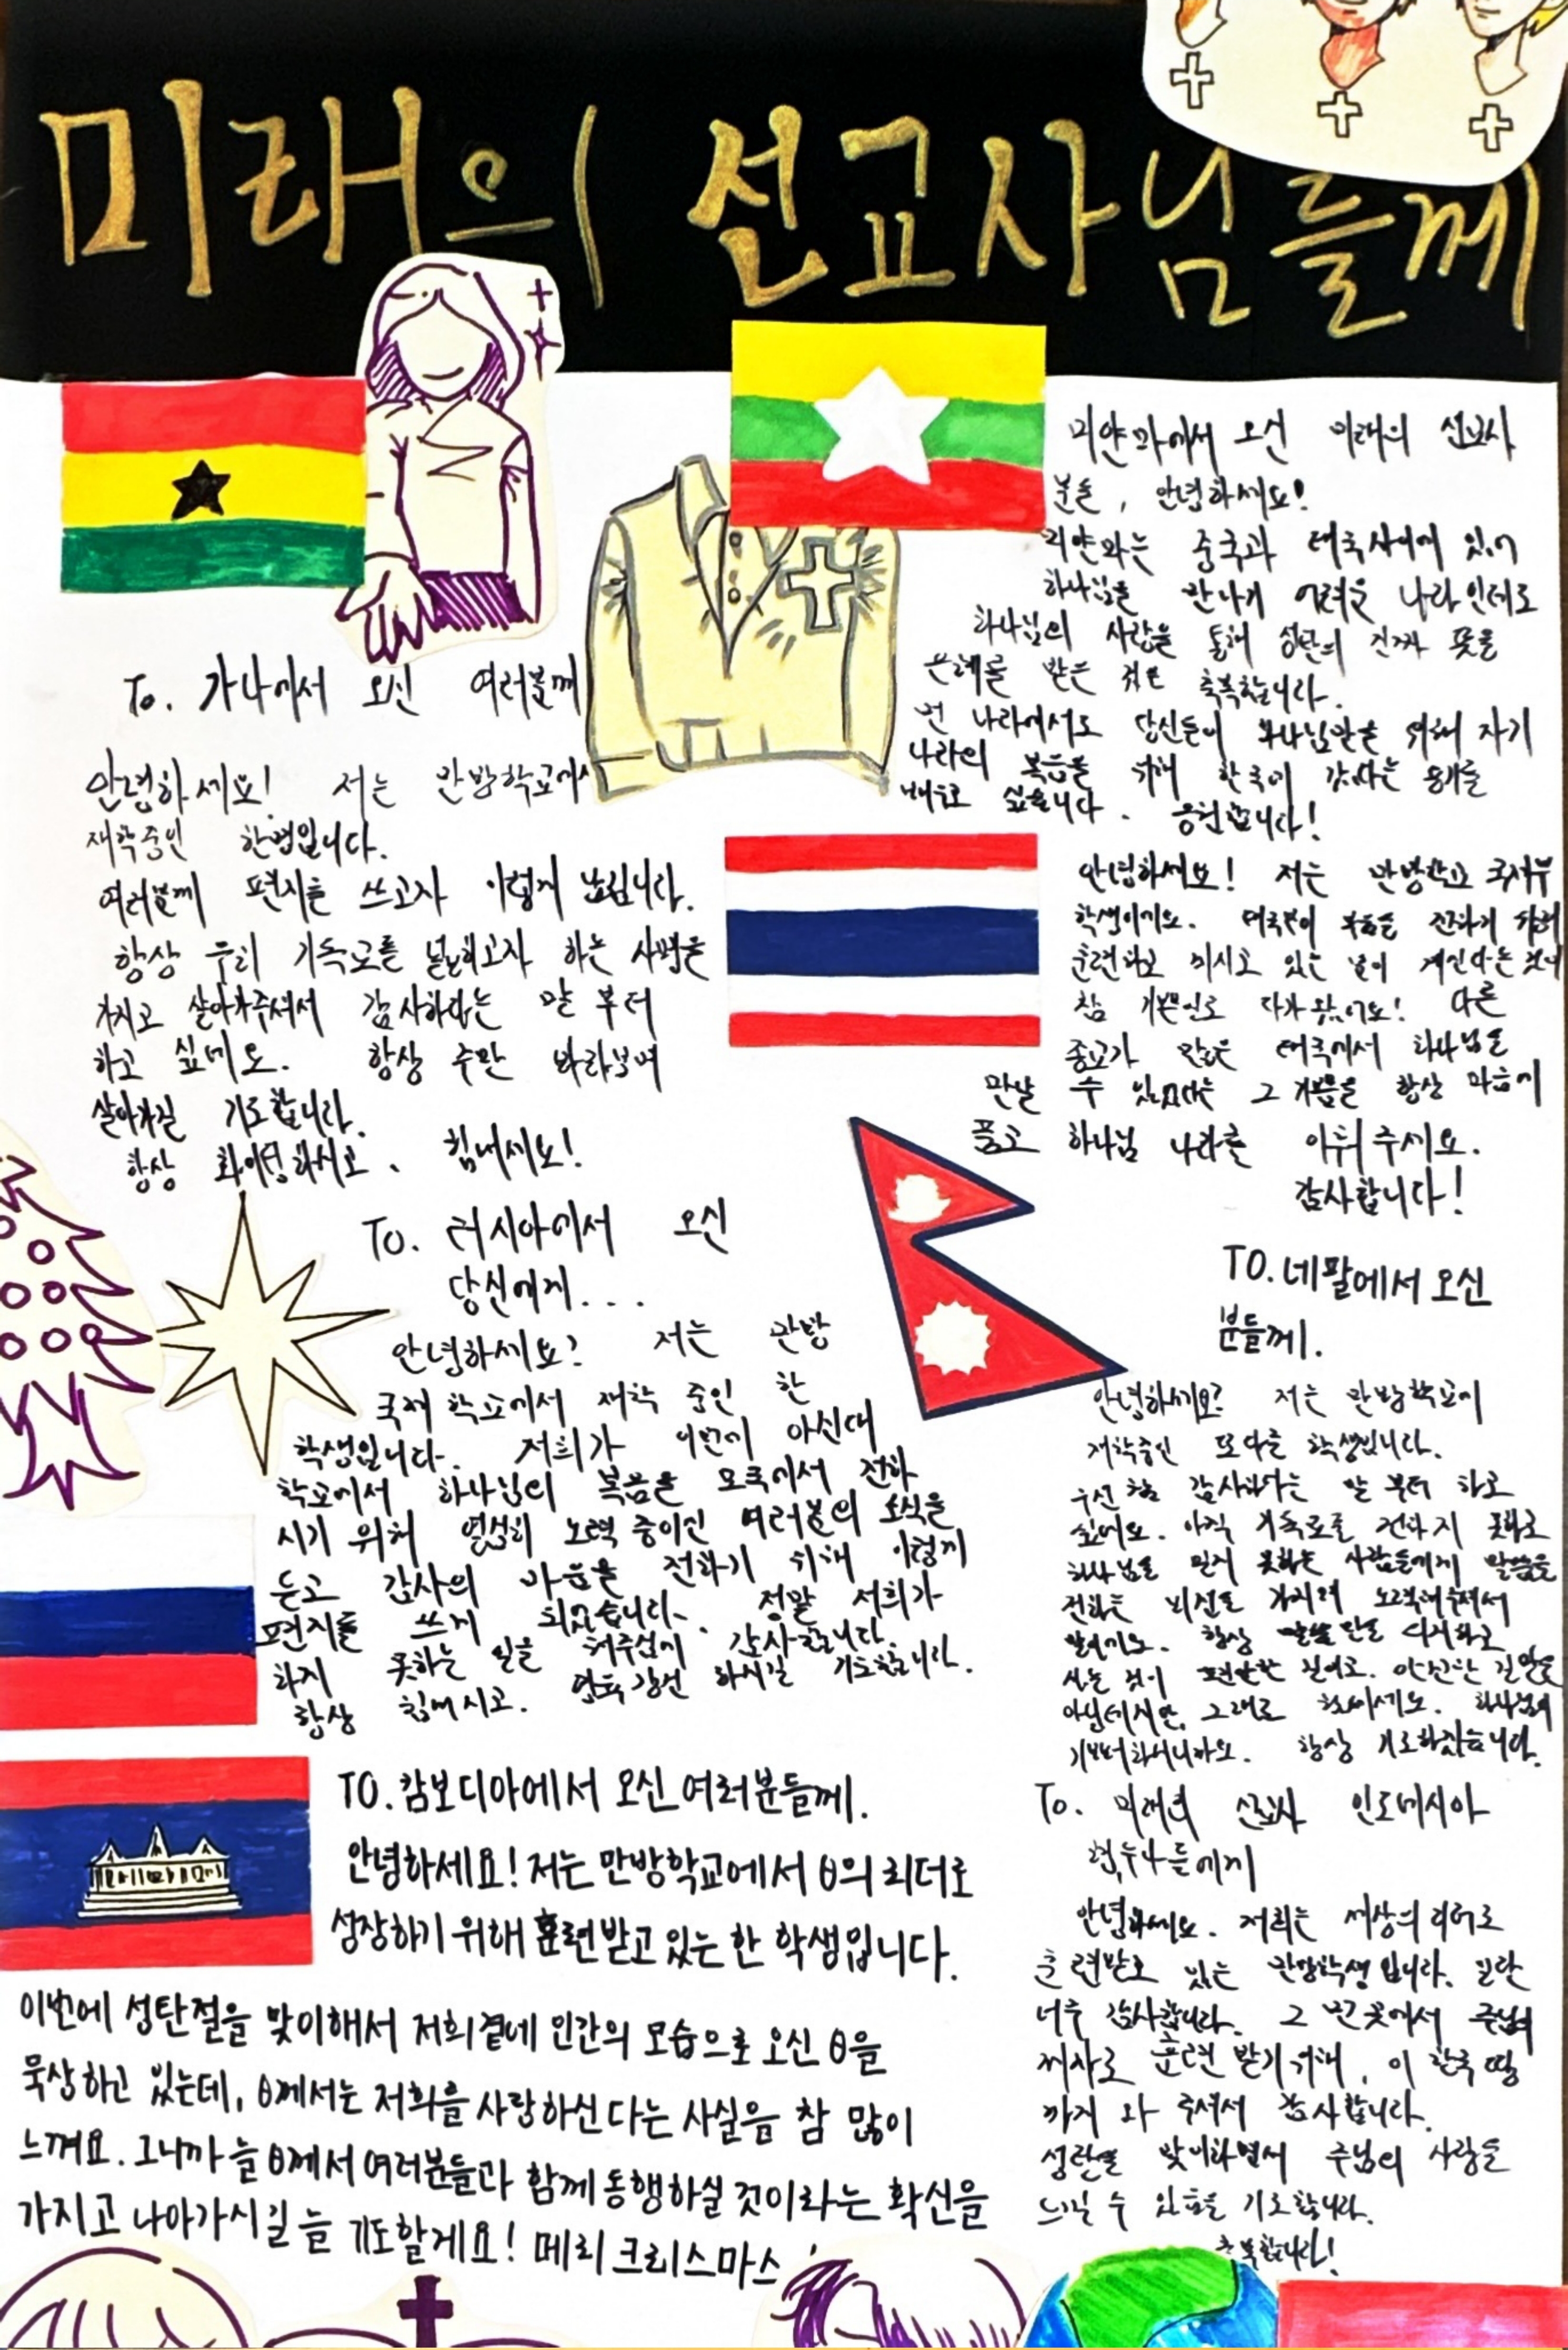 미래의 선교사님들께
To. 가나에서 오신 여러분께
안녕하세요! 저는 만방학교에서
재학중인 한명입니다.
여러분께 편지를 쓰고자 이렇게 남깁니다.
항상 우리 기독교를 널리고자 하는 사명을
가지고 살아가주셔서 감사하다는 말 부터
하고 싶네요. 항상 주만 바라보며
살아가길 기도합니다.
항상 화이팅하시고. 힘내세요!
미얀마에서 오신 미래의 선교사
분들, 안녕하세요!
미얀마는 중국과 태국사이에 있어
하나님을 만나기 어려운 나라인데도
하나님의 사랑을 통해 성탄의 진짜 뜻을
은혜를 받은 것은 축복합니다.
먼 나라에서도 당신들이 하나님만을 위해 자기
나라의 복음을 위해 한국에 갔다는 용기를
싶습니다. 응원합니다!
안녕하세요! 저는 만방학교 국제부
학생이에요. 태국분이 복음을 전하기 위해
훈련하고 계시고 있는 분이 계신다는 것이
참 기쁨으로 다가왔어요! 다른
종교가 많은 태국에서 하나님을
만날 수 있었다는 그 기쁨을 항상 마음에
품고 하나님 나라를 이뤄주세요.
감사합니다!
To. 러시아에서 오신
당신에게...
안녕하세요? 저는 만방
국제 학교에서 재학 중인 한
학생입니다. 저희가 이번에 아신대
학교에서 하나님의 복음을 모국에서 전하
시기 위해 열심히 노력 중이신 여러분의 소식을
듣고 감사의 마음을 전하기 위해 이렇게
편지를 쓰게 되었습니다. 정말 저희가
하지 못하는 일을 해주심에 감사합니다.
항상 힘내시고. 영육 강건 하시길 기도합니다.
TO. 네팔에서 오신
분들께.
안녕하세요? 저는 만방학교에
재학중인 또다른 학생입니다.
우선 참 감사하다는 말 부터 하고
싶어요. 아직 기독교를 전하지 못하고
하나님을 믿지 못하는 사람들에게 말씀을
전하는 비전을 가지며 노력해주셔서
항상 말씀만을
사는 것이 편안한 길이고. 안전한 길만은
아닐테지만, 그래도 힘내세요. 하나님이
기뻐하시니까요. 항상 기도하겠습니다.
TO. 캄보디아에서 오신 여러분들께.
안녕하세요! 저는 만방학교에서 θ의 리더로
성장하기 위해 훈련받고 있는 한 학생입니다.
이번에 성탄절을 맞이해서 저희곁에 인간의 모습으로 오신 θ을
묵상하고 있는데, θ께서는 저희를 사랑하신다는 사실을 참 많이
느껴요. 그니까 늘 θ께서 여러분들과 함께 동행하실 것이라는 확신을
가지고 나아가시길 늘 기도할게요! 메리 크리스마스
To. 미래의 선교사 인도네시아
형,누나들에게
안녕하세요. 저희는 세상의 리더로
훈련받고 있는 만방학생입니다. 일단
너무 감사합니다. 그 먼 곳에서 주님의
제자로 훈련 받기위해, 이 한국 땅
까지 와 주셔서 감사합니다.
성탄을 맞이하면서 주님의 사랑을
느낄 수 있음을 기도합니다.
축복합니다!